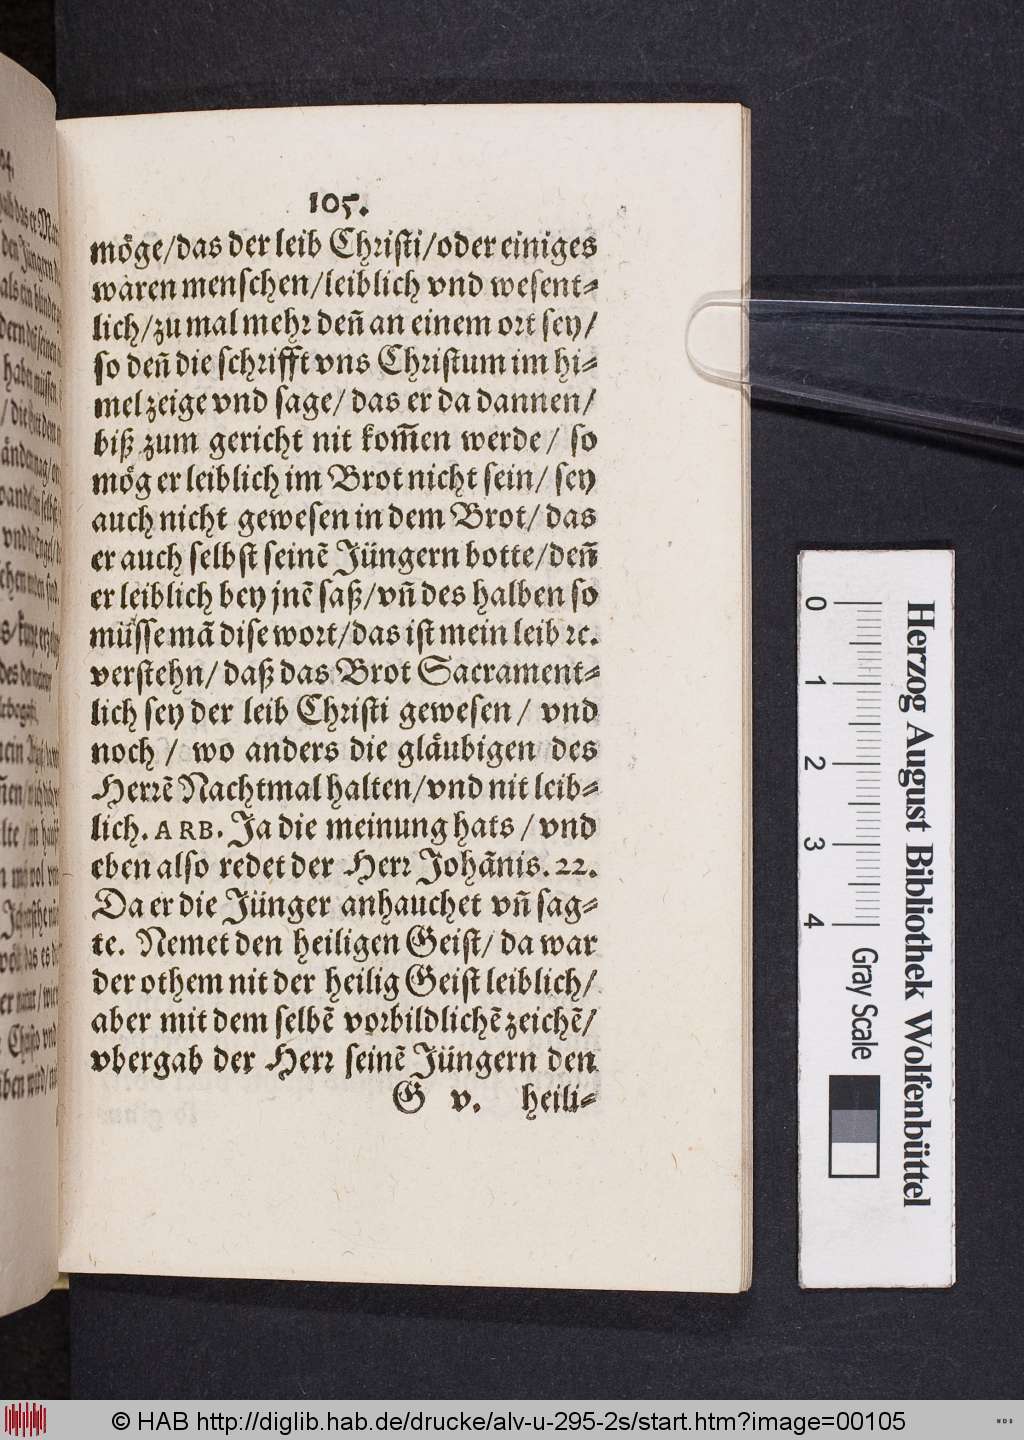 105.
möge/das der leib Christi/oder einiges
waren menschen/leiblich vnd wesent-
lich/zu mal mehr deñ an einem ort sey/
so deñ die schrifft vns Christum im hi-
mel zeige vnd sage/ das er da dannen/
biß zum gericht nit kom̃en werde/ so
mög er leiblich im Brot nicht sein/ sey
auch nicht gewesen in dem Brot/ das
er auch selbst seinẽ Jüngern botte/deñ
er leiblich bey jnẽ saß/vñ des halben so
müsse mã dise wort/das ist mein leib ꝛc.
verstehn/ daß das Brot Sacrament-
lich sey der leib Christi gewesen / vnd
noch / wo anders die gläubigen des
Herrẽ Nachtmal halten/vnd nit leib-
lich. ARB. Ja die meinung hats / vnd
eben also redet der Herr Johãnis. 22.
Da er die Jünger anhauchet vñ sag-
te. Nemet den heiligen Geist/ da war
der othem nit der heilig Geist leiblich/
aber mit dem selbẽ vorbildlichẽ zeichẽ/
vbergab der Herr seinẽ Jüngern den
G v. heili-
Herzog August Bibliothek Wolfenbüttel
0 1 2 3 4 Gray Scale
© HAB http://diglib.hab.de/drucke/alv-u-295-2s/start.htm?image=00105